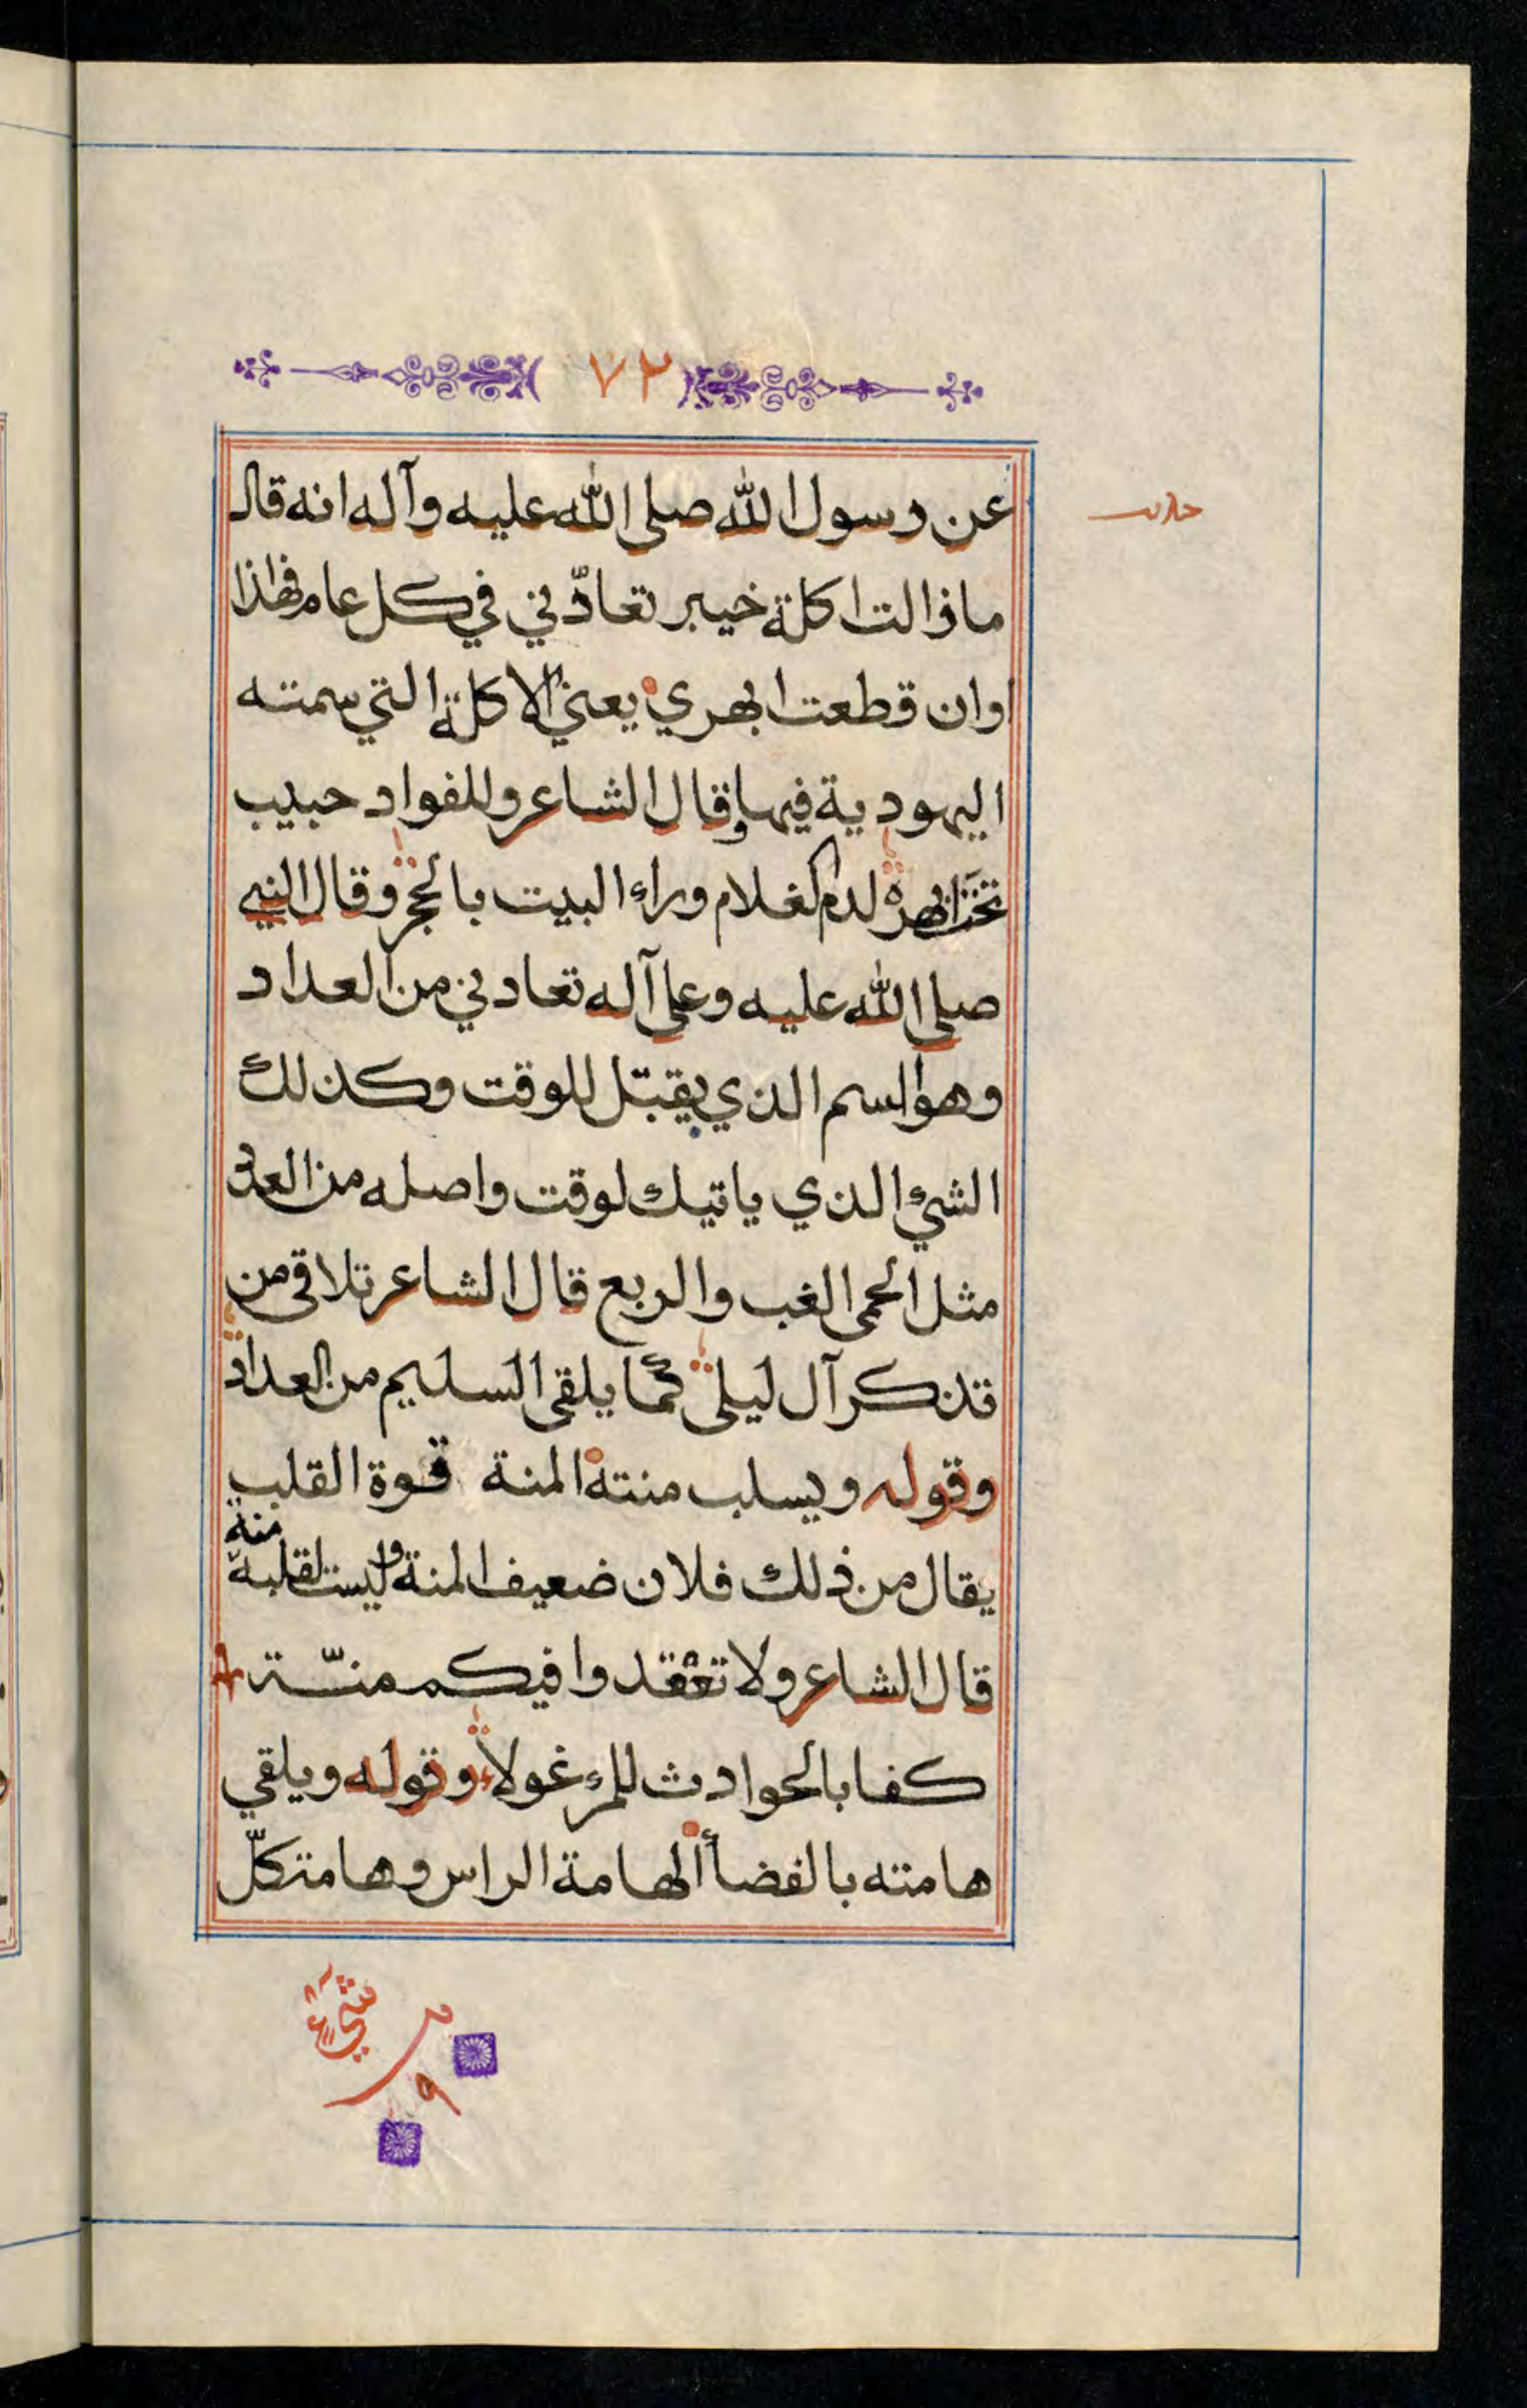 ٧٢
عن رسول الله صلى الله عليه وآله انه قال
حديث
ما زالت اكلة خيبر تعادّني في كل عام فهذا
اوان قطعت ابهري يعني الاكلة التي سمته
اليهودية فيها وقال الشاعر وللفواد حبيب
تحت ابهره لدم الغلام وراء البيت بالحجر وقال النبي
صلى الله عليه وعلى آله تعادني من العداد
وهو السم الذي يقتل للوقت وكذلك
الشيء الذي ياتيك لوقت واصله من العدد
مثل الحمى الغب والربع قال الشاعر تلاقي من
تذكر آل ليلى كما يلقى السليم من العداد
وقوله ويسلب منته المنة قوة القلب
يقال من ذلك فلان ضعيف المنة وليست لقلبه منة
قال الشاعر ولا تقعدوا وفيكم منّة
كفا بالحوادث للمرء غولا وقوله ويلقي
هامته بالفضأ الهامة الراس وهامة كلّ
شيء